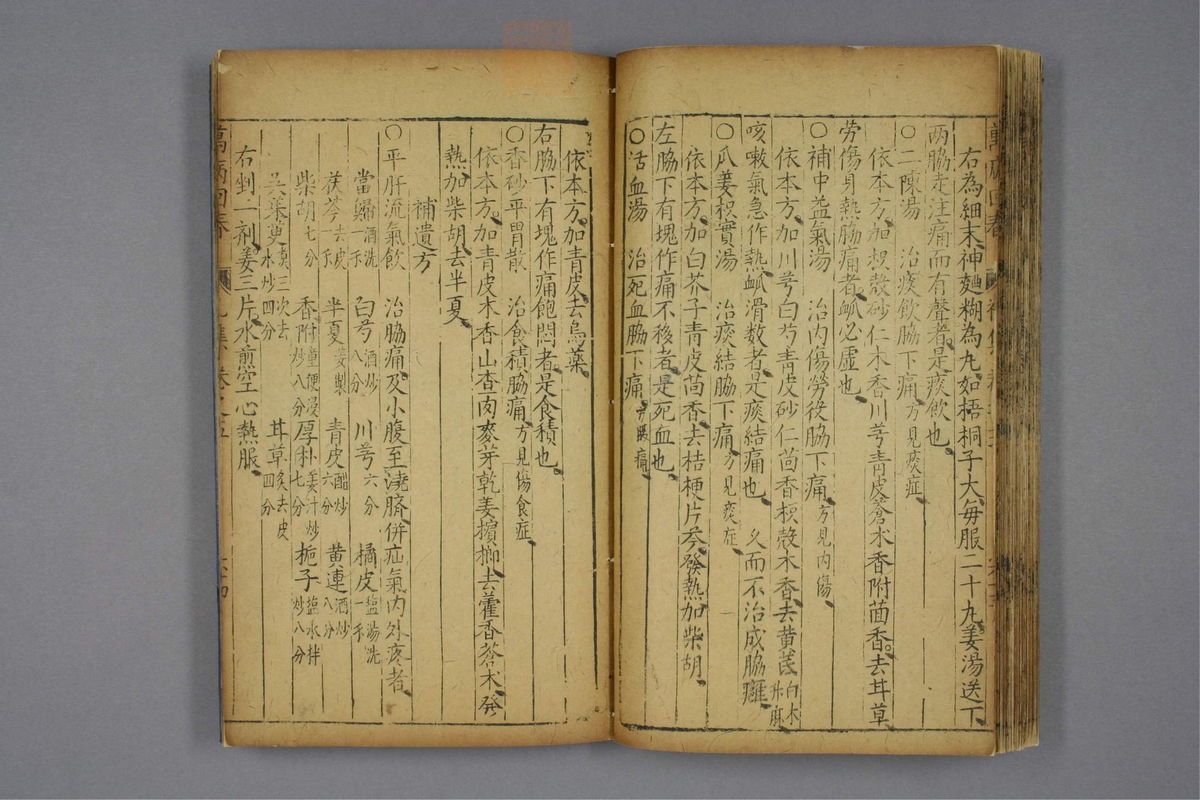 右為細末神麯糊為丸如梧桐子大每服二十丸姜湯送下
兩脇走注痛而有聲者是痰飲也
○二陳湯 治痰飲脇下痛方見痰症
依本方加枳殼砂仁木香川芎青皮蒼朮香附茴香去甘草
勞傷身熱脇痛者脉必虛也
○補中益氣湯 治內傷勞役脇下痛方見內傷
依本方加川芎白芍青皮砂仁茴香枳殼木香去黃芪白木升麻
咳嗽氣急作熱脉滑数者是痰結痛也 久而不治成脇癰
○瓜蔞枳實湯 治痰結脇下痛方見痰症
依本方加白芥子青皮茴香去桔梗片芩發熱加柴胡
左脇下有塊作痛不移者是死血也
○活血湯 治死血脇下痛方腹痛
依本方加青皮去烏藥
右脇下有塊作痛飽悶者是食積也
○香砂平胃散 治食積脇痛方見傷食症
依本方加青皮木香山查肉麥芽乾姜擯榔去藿香蒼木發
熱加柴胡去半夏
補遺方
○平肝流氣飲 治脇痛及小腹至澆臍併疝氣內外疼者
當歸酒洗一不 白芍酒炒八分 川芎六分 橘皮塩湯洗一不
茯苓去皮一不 半夏姜製 青皮醋炒六分 黃連酒炒八分
柴胡七分 香附童便浸炒八分 厚朴姜汁炒七分 梔子塩水拌炒八分
吳茱萸煮三次去水炒四分 甘草炙去皮四分
右剉一剤姜三片水煎空心熱服
萬病回春
萬病回春